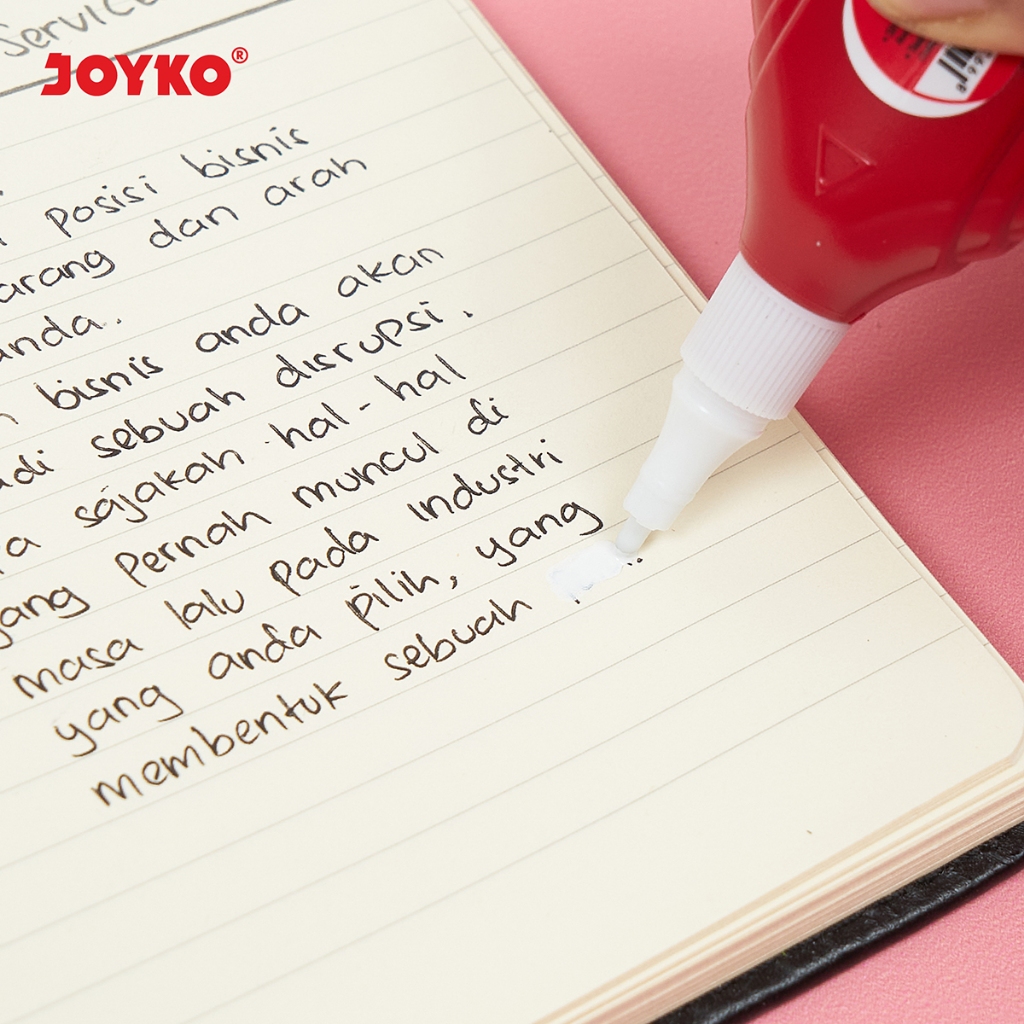 Service
JOYKO®
posisi bisnis
arang dan arah
anda.
bisnis anda akan
adi sebuah disrupsi.
sajakah hal-hal
yang pernah muncul di
masa lalu pada industri
yang anda pilih, yang
membentuk sebuah